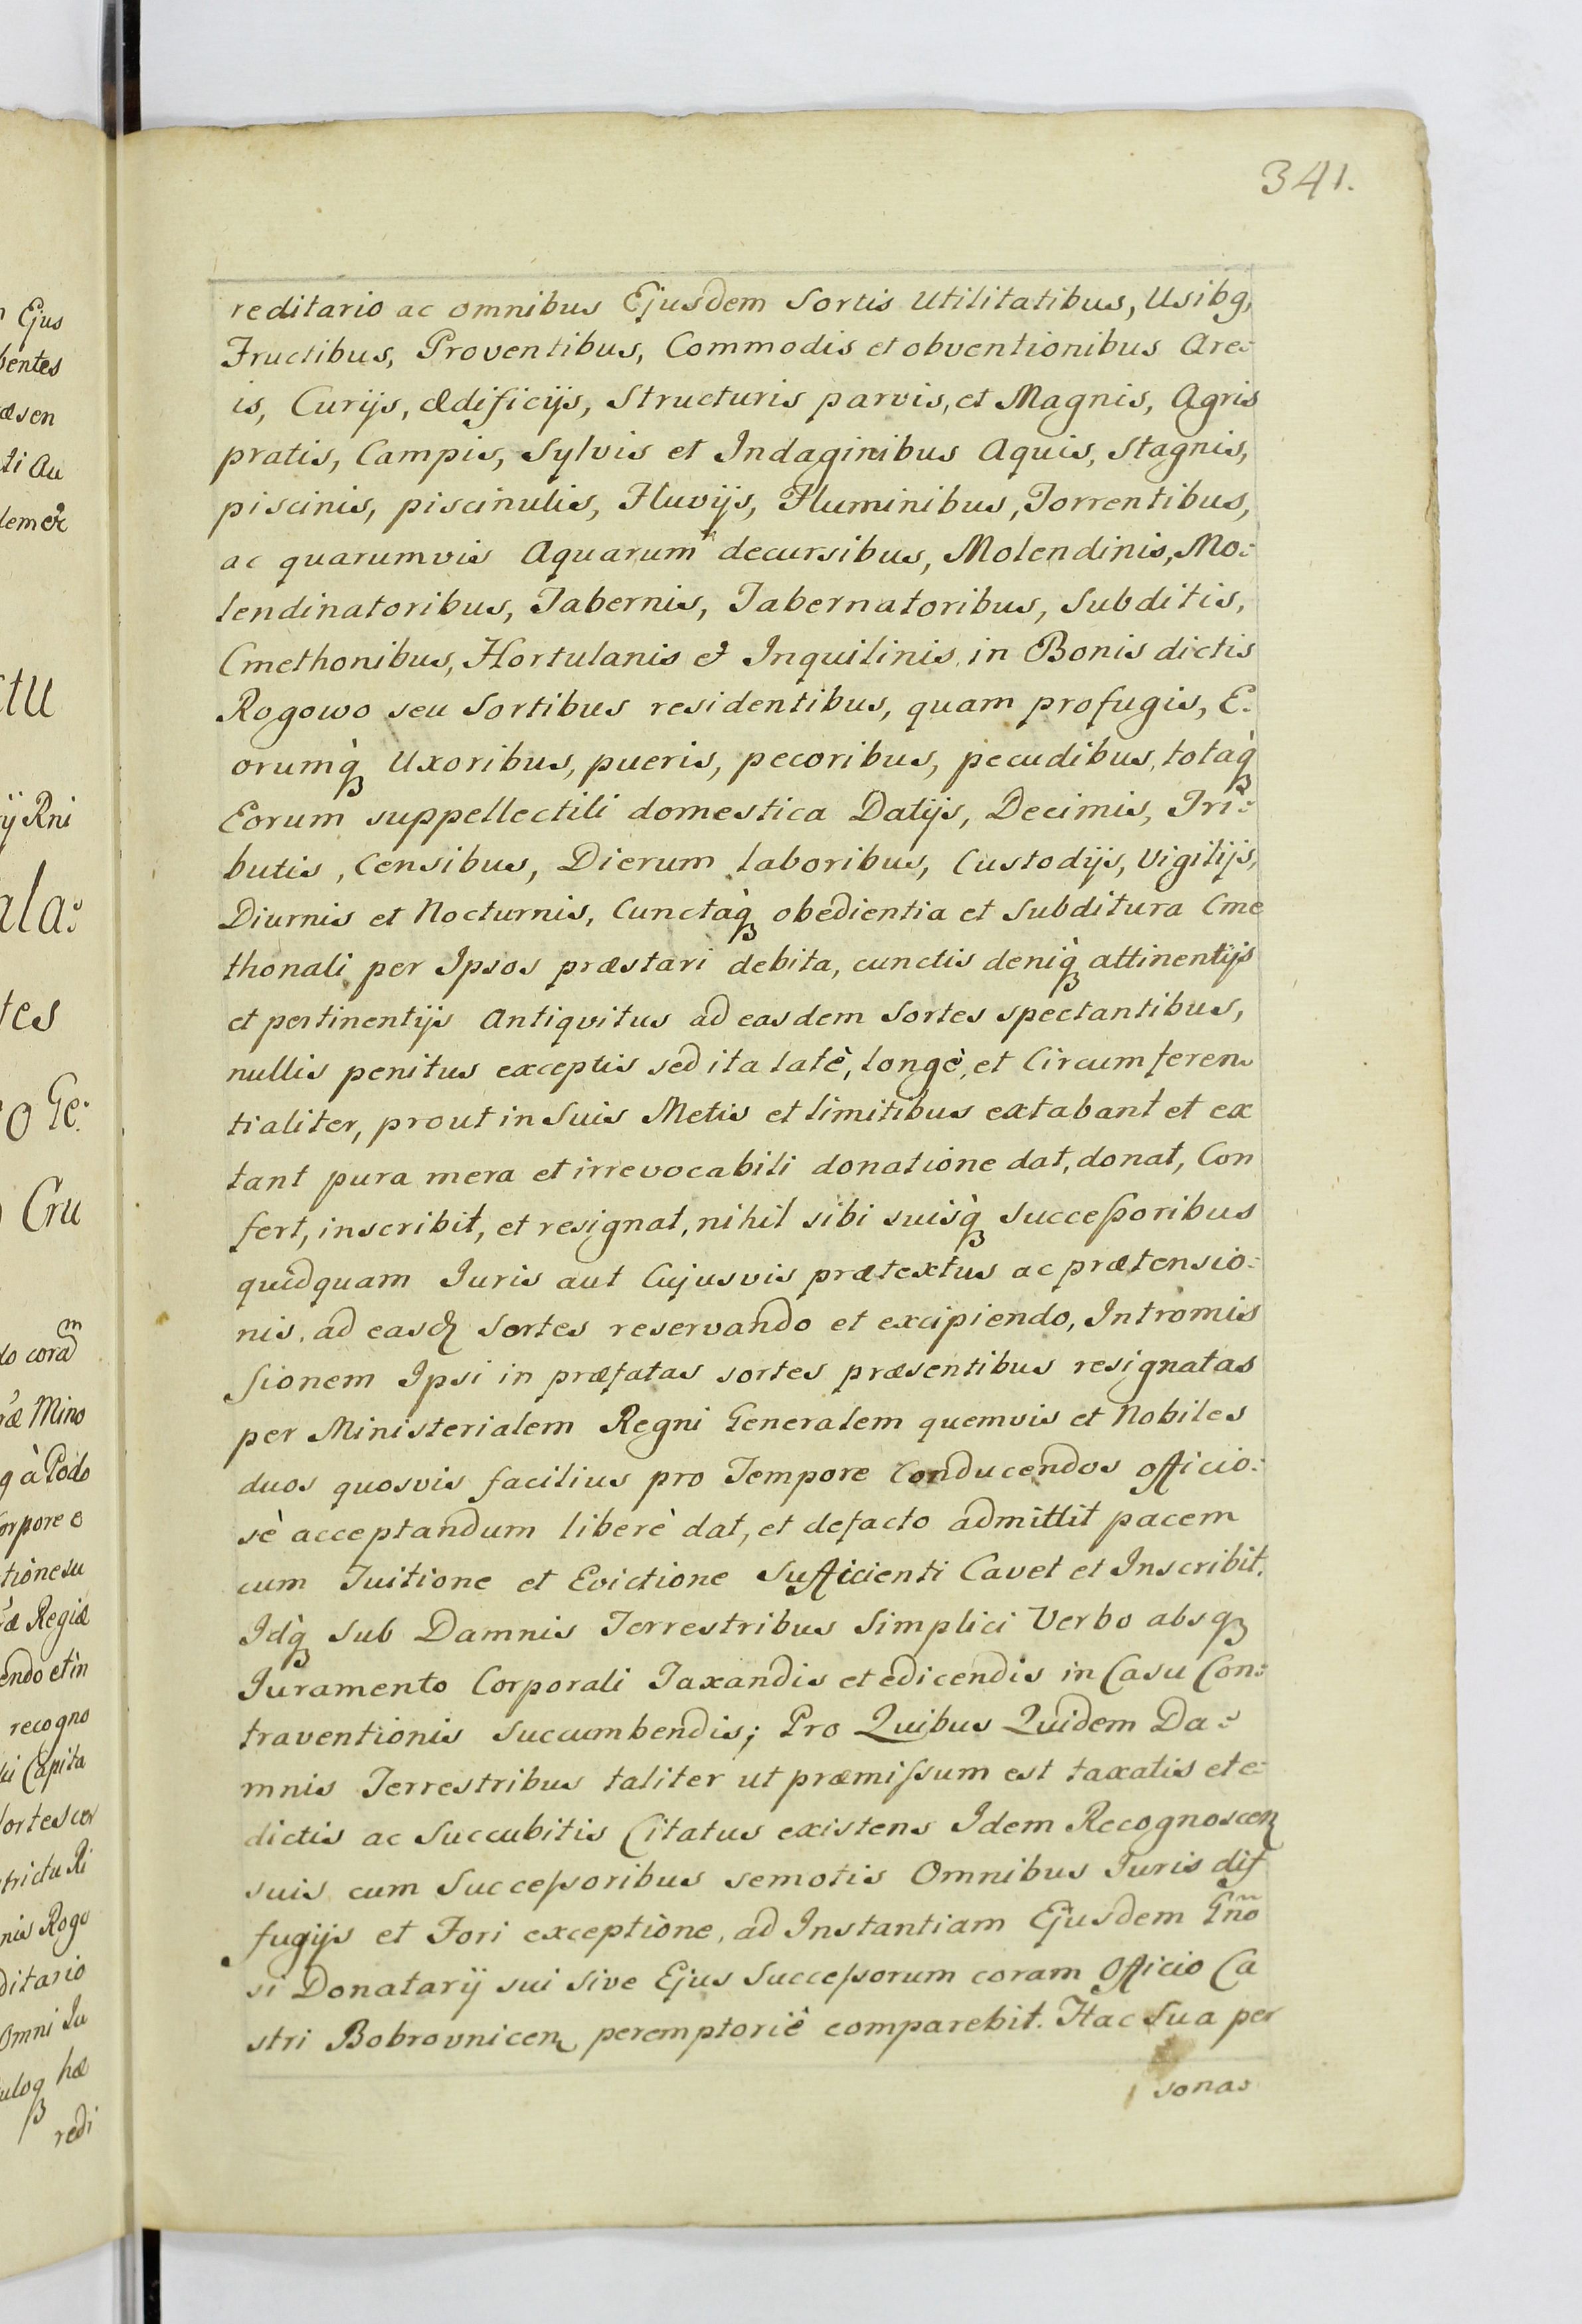 341.
reditario ac omnibus Ejusdem Sortis Utilitatibus, Usibq,
Fructibus, Proventibus, Commodis et obventionibus Are:
is, Curijs, ædificijs, Structuris parvis, et Magnis, Agris
pratis, Campis, Sylvis et Indaginibus Aquis, Stagnis,
piscinis, piscinulis, Fluvijs, Fluminibus, Torrentibus,
ac quarumvis Aquarum decursibus, Molendinis, Mo:
lendinatoribus, Tabernis, Tabernatoribus, Subditis,
Cmethonibus, Hortulanis et Inquilinis, in Bonis dictis
Rogowo seu Sortibus residentibus, quam profugis, E:
orumq̀ꝫ Uxoribus, pueris, pecoribus, pecudibus, totaq̀ꝫ
Eorum suppellectili domestica Datijs, Decimis, Tri:
butis, Censibus, Dierum laboribus, Custodijs, Vigilijs,
Diurnis et Nocturnis, Cunctaq̀ꝫ obedientia et Subditura Cme
thonali per Ipsos præstari debita, cunctis deniq̀ꝫ attinentijs
et pertinentijs Antiqvitus ad easdem Sortes spectantibus,
nullis penitus exceptis sed ita latè, longè, et Circumferen:
tialiter, prout in Suis Metis et limitibus extabant et ex
tant pura mera et irrevocabili donatione dat, donat, Con
fert, inscribit, et resignat, nihil sibi suisq̀ꝫ Succeſsoribus
quidquam Juris aut Cujusvis prætextus ac prætensio:
nis, ad easdꝫ Sortes reservando et excipiendo, Intromis
sionem Ipsi in præfatas sortes præsentibus resignatas
per Ministerialem Regni Generalem quemvis et Nobiles
duos quosvis facilius pro Tempore Conducendos officio:
sè acceptandum liberè dat, et defacto admittit pacem
cum Tuitione et Evictione Sufficienti Cavet et Inscribit.
Idqꝫ Sub Damnis Terrestribus Simplici Verbo absqꝫ
Juramento Corporali Taxandis et edicendis in Casu Con:
traventionis Succumbendis; Pro Quibus Quidem Da:
mnis Terrestribus taliter ut præmiſsum est taxatis et e:
dictis ac Succubitis Citatus existens Idem Recognoscenꝫ
suis cum Succeſsoribus semotis Omnibus Juris dif
fugijs et Fori exceptione, ad Instantiam Ejusdem Gno͂
si Donatarij sui Sive Ejus Succeſsorum coram Officio Ca
stri Bobrovnicenꝫ peremptoriè comparebit. Hac Sua per
sona:
Ejus
bentes
æsen
ti Au
tu
ij Rni
ala:
tes
o Ge:
Cru
do coradͫ
æ Mino
q à Podo
orpore e
tione su
æ Regiæ
endo et in
recogno
Capita
ortes cor
trictu Ri
nis Rogo
ditario
Omni Ju
hæ
redi